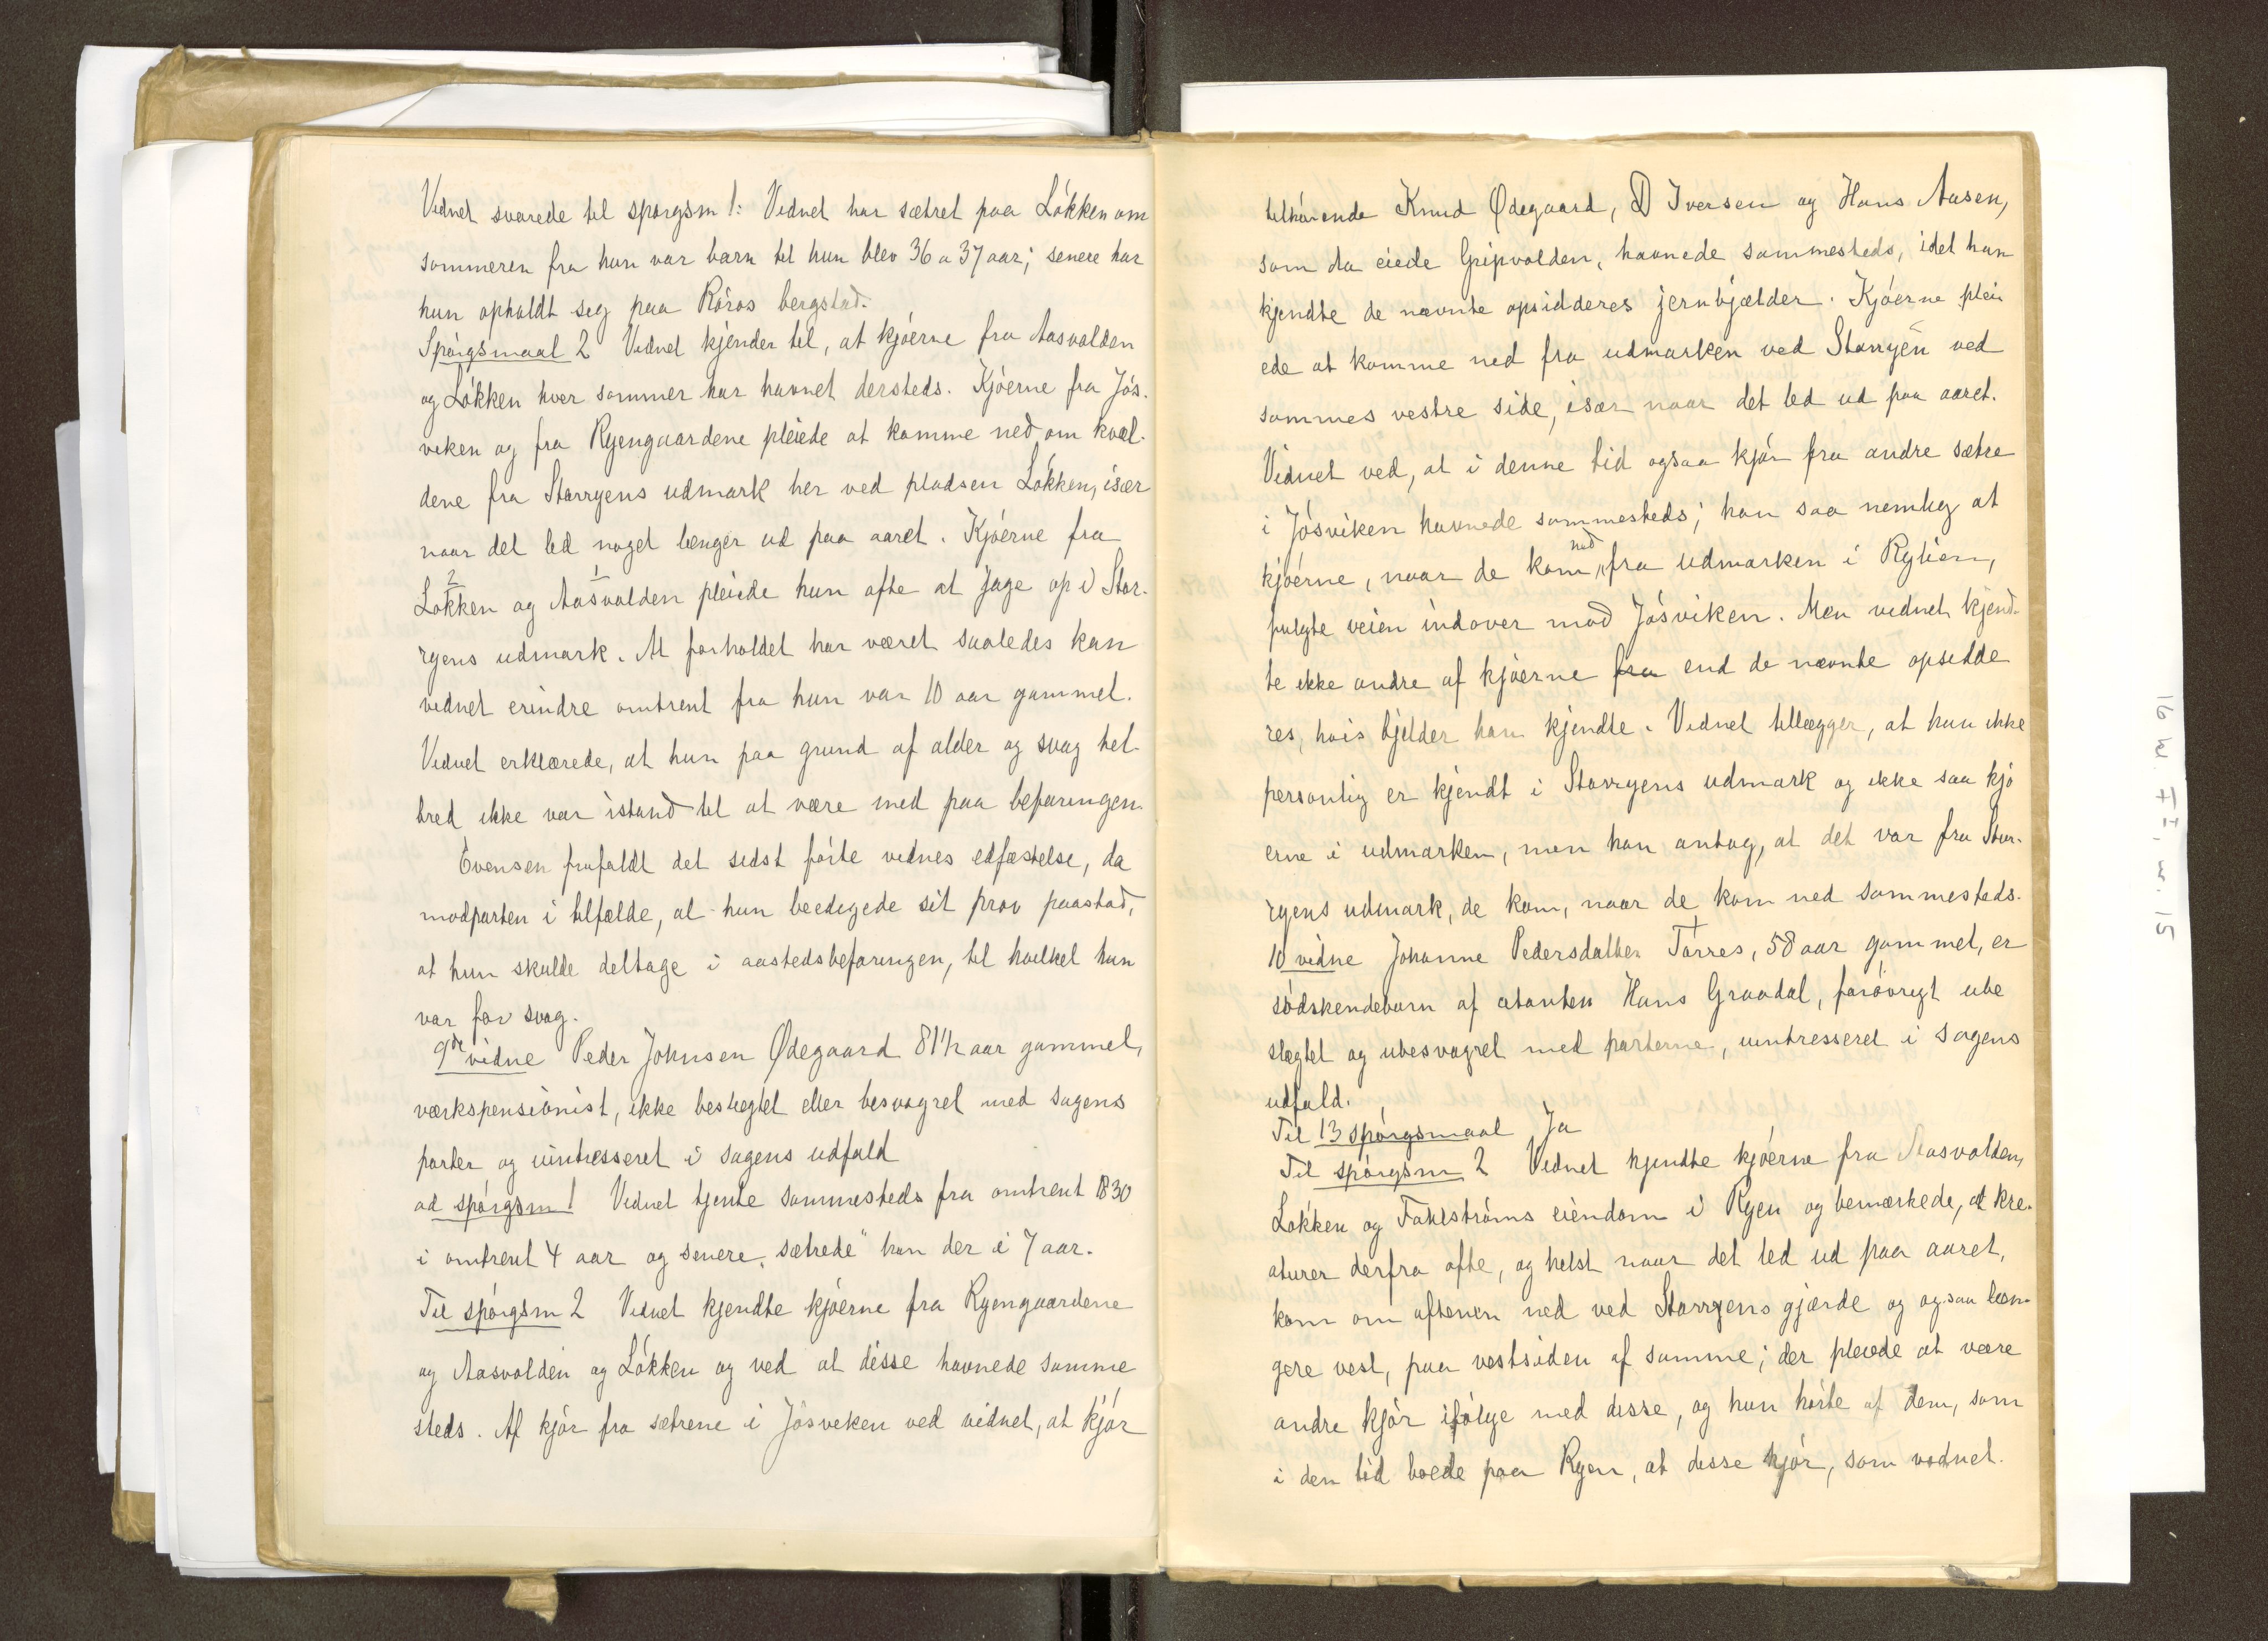 Vidnet svarede til spørgsm 1: Vidnet har sætret paa Løkken om
sommeren fra hun var barn til hun blev 36 a 37 aar; senere har
hun opholdt sig paa Røros bergstad.
Spørgsmaal 2 Vidnet kjender til, at kjøerne fra Aasvolden
og Løkken hver sommer har havnet dersteds. Kjøerne fra Jøs-
viken og fra Ryengaardene pleiede at komme ned om kvel-
dene fra Storryens udmark her ved pladsen Løkken, især
naar det led noget længer ud paa aaret. Kjøerne fra
2 1
Løkken og Aasvolden pleiede hun ofte at jage op i Stor-
ryens udmark. At forholdet har været saaledes kan
vidnet erindre omtrent fra hun var 10 aar gammel.
Vidnet erklærede, at hun paa grund af alder og svag hel-
bred ikke var istand til at være med paa befaringen.
Evensen frafaldt det sidst førte vidnes edfæstelse, da
modparten i tilfælde, at hun beedigede sit prov paastod,
at hun skulde deltage i aastedsbefaringen, til hvilket hun
var for svag.
9de vidne Peder Johnsen Ødegaard 81½ aar gammel,
værkspensionist, ikke beslegtet eller besvogret med sagens
parter og uintresseret i sagens udfald
ad spørgsm 1 Vidnet tjente sammesteds fra omtrent 1830
i omtrent 4 aar og senere „sætrede" han der i 7 aar.
Til spørgsm 2 Vidnet kjendte kjøerne fra Ryengaardene
og Aasvolden og Løkken og ved at disse havnede samme
steds. Af kjør fra sætrene i Jøsviken ved vidnet, at kjør
tilhørende Knud Ødegaard, D Iversen og Hans Aasen,
som da eiede Gripvolden, havnede sammesteds, idet han
kjendte de nævnte opsidderes jernbjælder. Kjøerne plei
ede at komme ned fra udmarken ved Storryen ved
sammes vestre side, især naar det led ud paa aaret.
Vidnet ved, at i denne tid ogsaa kjør fra andre sætre
i Jøsviken havnede sammesteds; han saa nemlig at
kjøerne, naar de kom ned fra udmarken i Rylien,
fulgte veien indover mod Jøsviken. Men vidnet kjend-
te ikke andre af kjøerne fra end de nævnte opsidde
res, hvis bjelder han kjendte. Vidnet tillægger, at han ikke
personlig er kjendt i Storryens udmark og ikke saa kjø
erne i udmarken, men han antog, at det var fra Stor-
ryens udmark, de kom, naar de kom ned sammesteds.
10 vidne Johanne Pedersdatter Tørres, 58 aar gammel, er
södskendebarn af citanten Hans Graadal, forøvrigt ube
slegtet og ubesvogret med parterne, uintresseret i sagens
udfald.
Til 13 spørgsmaal Ja
Til spørgsm 2 Vidnet kjendte kjøerne fra Aasvolden,
Løkken og Fahlstrøms eiendom i Ryen og bemærkede, at kre-
aturer derfra ofte, og helst naar det led ud paa aaret,
kom om aftenen ned ved Storryens gjærde og ogsaa læn-
gere vest, paa vestsiden af samme; der pleiede at være
andre kjør ifølge med disse, og hun hørte af dem, som
i den tid boede paa Ryen, at disse kjør, som vidnet
16 W. FI, nr. 15